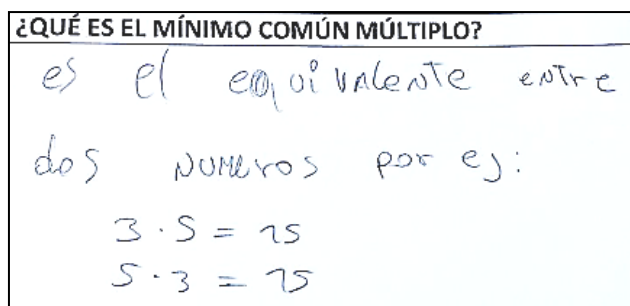 ¿QUÉ ES EL MÍNIMO COMÚN MÚLTIPLO?
es el equivalente entre
dos NUMEROS por ej:
3 · 5 = 15
5 · 3 = 15